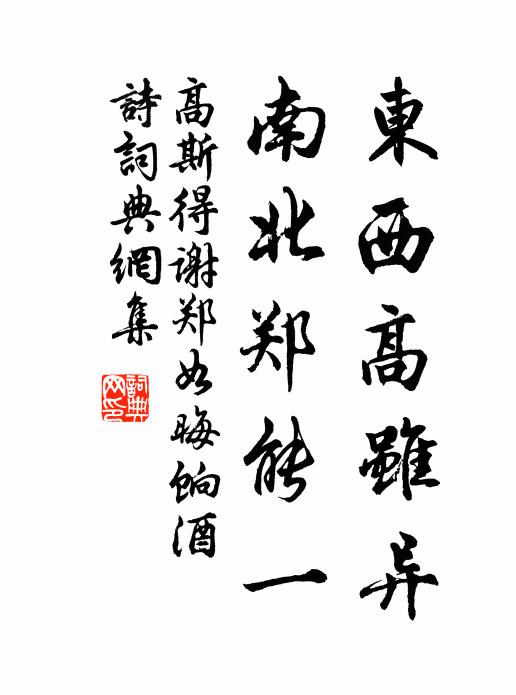 東西高雖异
南北郑能一
高斯得谢郑如晦餉酒
詩詞典網集
詞典网印